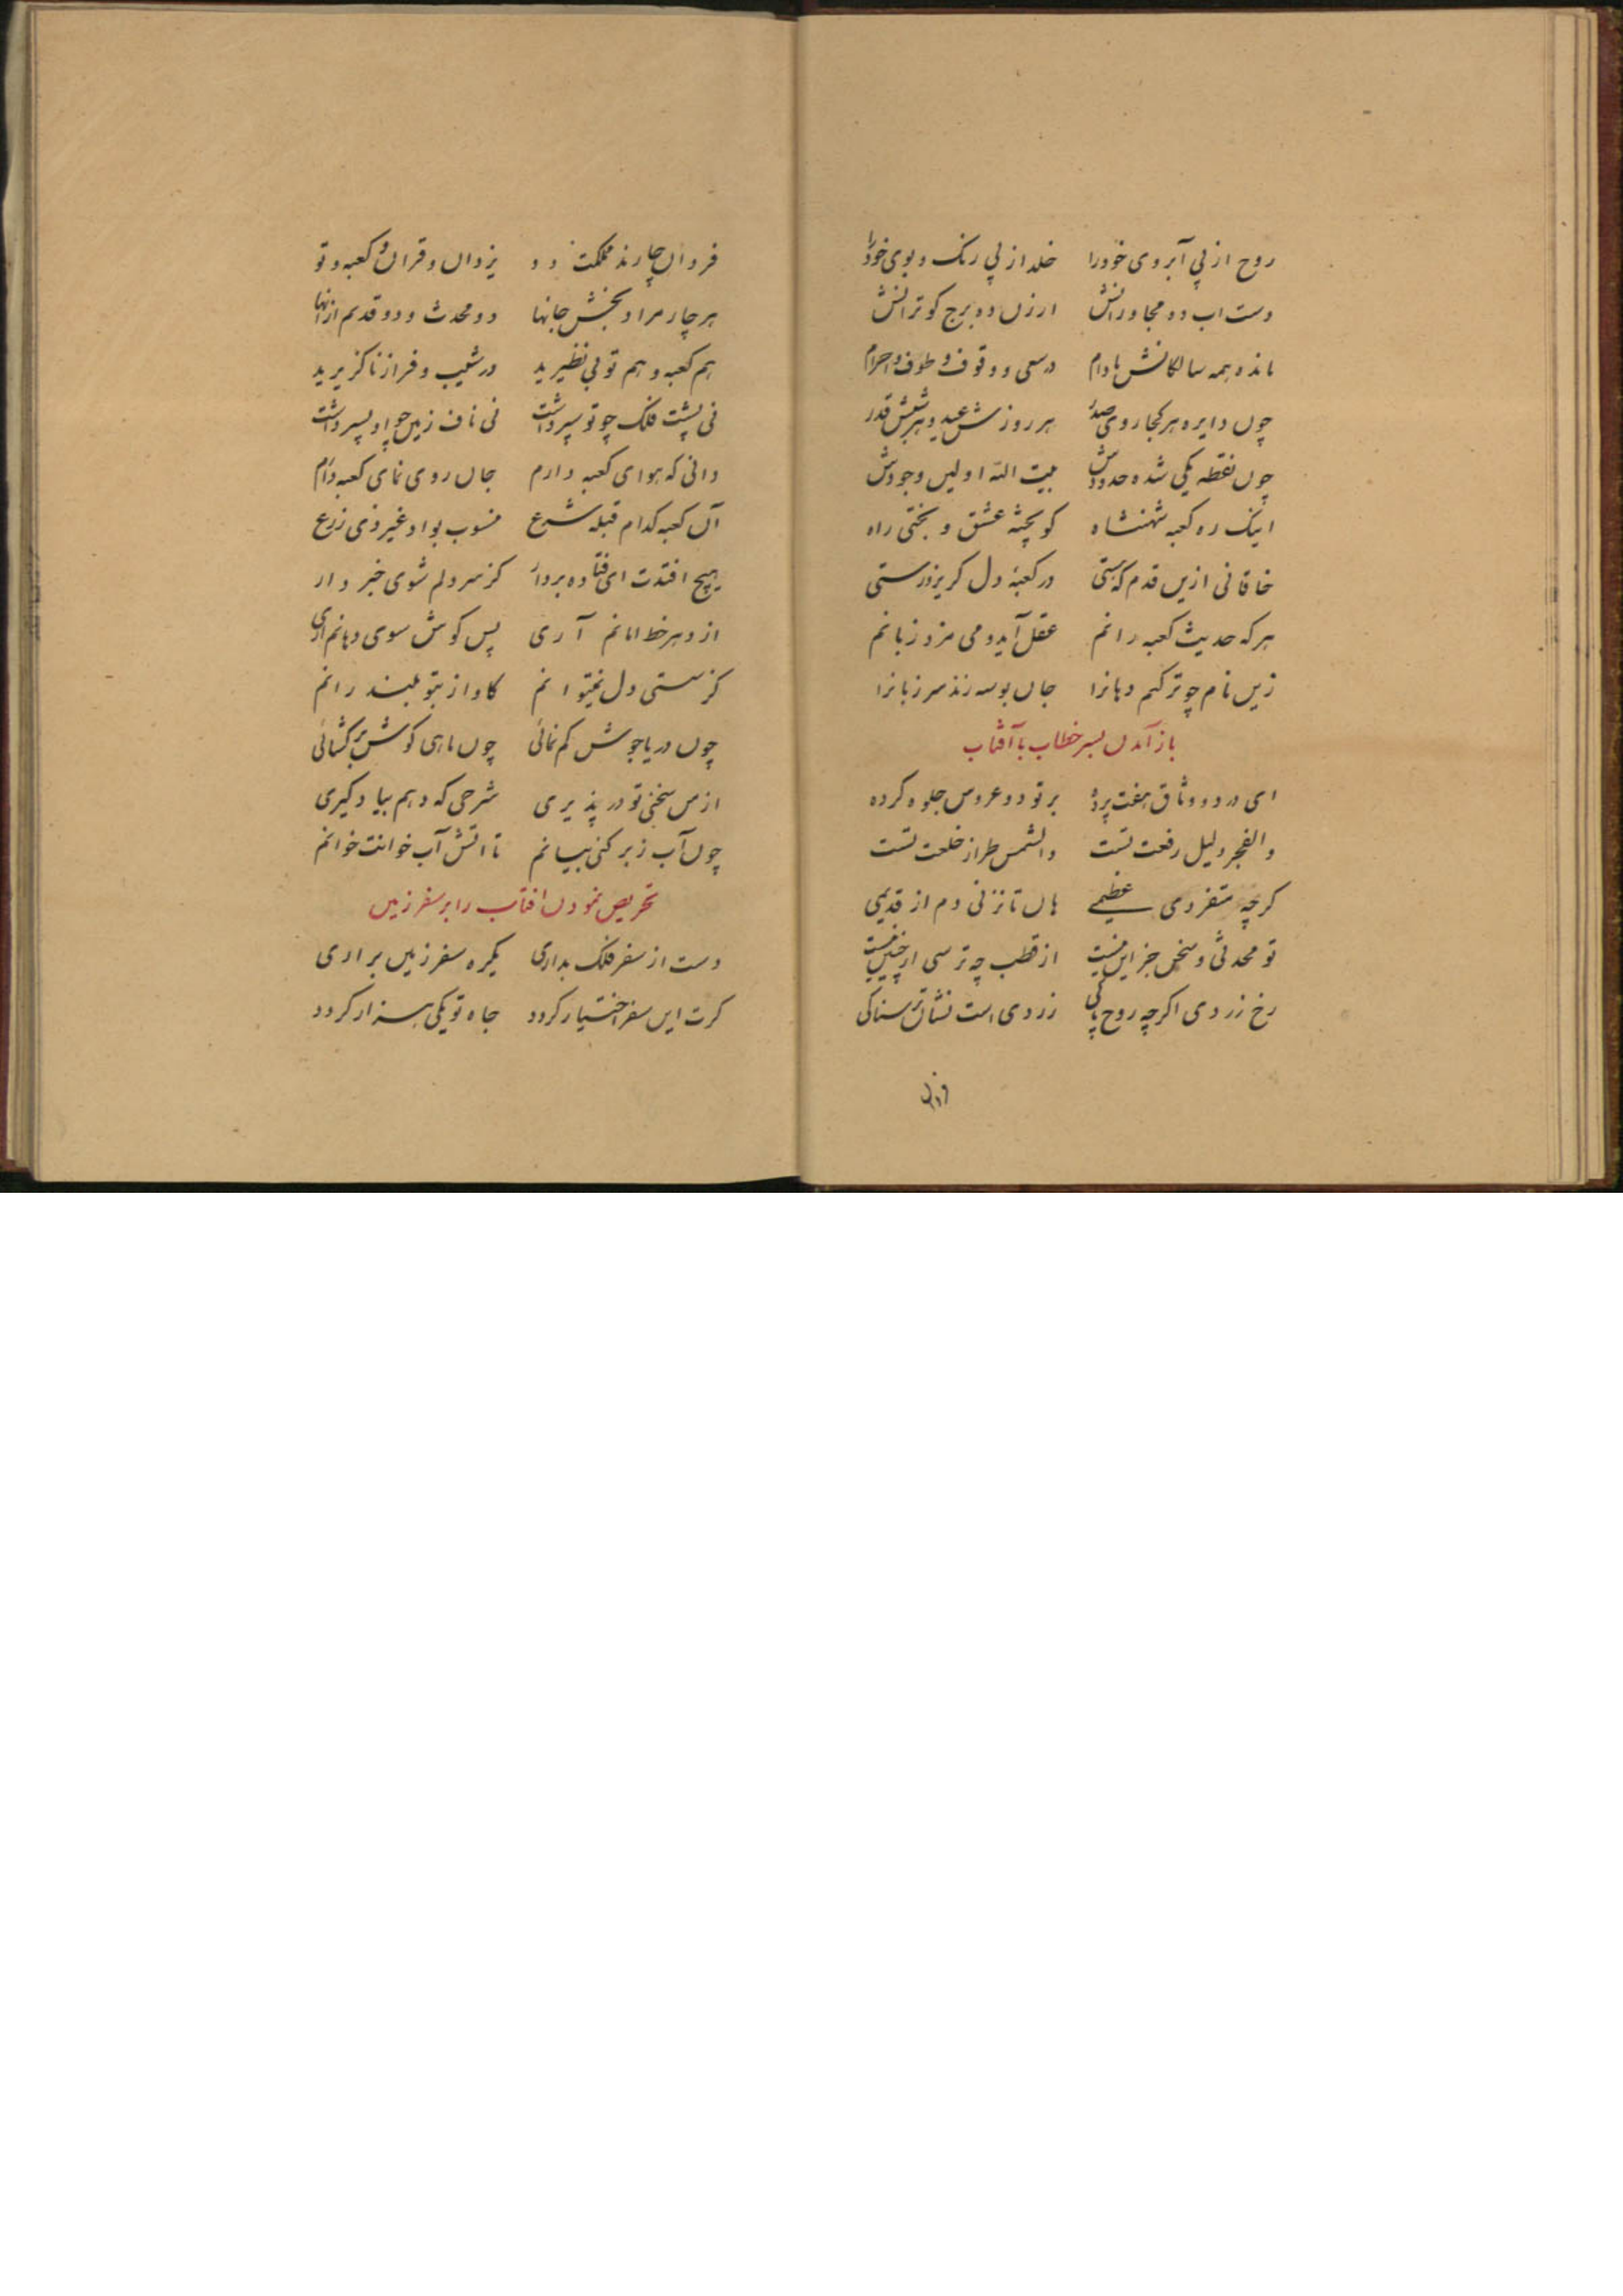 روح از پی آبروی خود را خلد از پی رنک و بوی خود را
دست اب ده مجاورانش ارزن ده برج کوترانش
مانده همه سالکانش مادام در سعی و وقوف و طوف و احرام
چون دایره هر کجا روی صدر هر روزش عید و هر شبش قدر
چون نقطه یکی شده حدودش بیت الله اولین وجودش
اینک ره کعبه شهنشاه کو بختهٔ عشق و بختی راه
خاقانی ازین قدم که هستی در کعبهٔ دل کریز و رستی
هر که حدیث کعبه رانم عقل آید و می مزد زبانم
زین نام چو تر کنم دهانرا جان بوسه زند سر زبانرا
باز آمدن بسر خطاب با آفتاب
ای در دو وثاق هفت پرده بر تو دو عروس جلوه کرده
والفجر دلیل رفعت تست والشمس طراز خلعت تست
کرچه متفردی عظیمے هان تا نزنی دم از قدیمی
تو محدثی و سخن جز این نیست از قطب چه ترسی ار چنین نیست
رخ زردی اکرچه روح پاکی زردی است نشان ترسناکی
فردان چارند مملکت دو یزدان و قران و کعبه و تو
هر چار مراد بخش جانها دو محدث و دو قدیم ازانها
هم کعبه و هم تو بی نظیرید در شیب و فراز ناکزیرید
نی پشت فلک چو تو سپر داشت نی ناف زمین چو او پسر داشت
دانی که هوای کعبه دارم جان روی نمای کعبه دارم
آن کعبه کدام قبله شرع منسوب بواد غیر ذی زرع
هیچ افتدت ای فتاده بردار کز سر دلم شوی خبر دار
از دهر خط امانم آری پس کوش سوی دهانم آری
کز سستی دل نمیتوانم کاواز بتو بلند رانم
چون دریا جوش کم نمائی چون ماهی کوش برکشائی
از من سخنی تو در پذیری شرحی که دهم بیاد کیری
چون آب زبر کنی بیانم تا اتش آب خوانت خوانم
تحریص نمودن افتاب را بر سفر زمین
دست از سفر فلک بداری یکره سفر زمین بر اری
کرت این سفر اختیار کردد جاه تو یکی هزار کردد